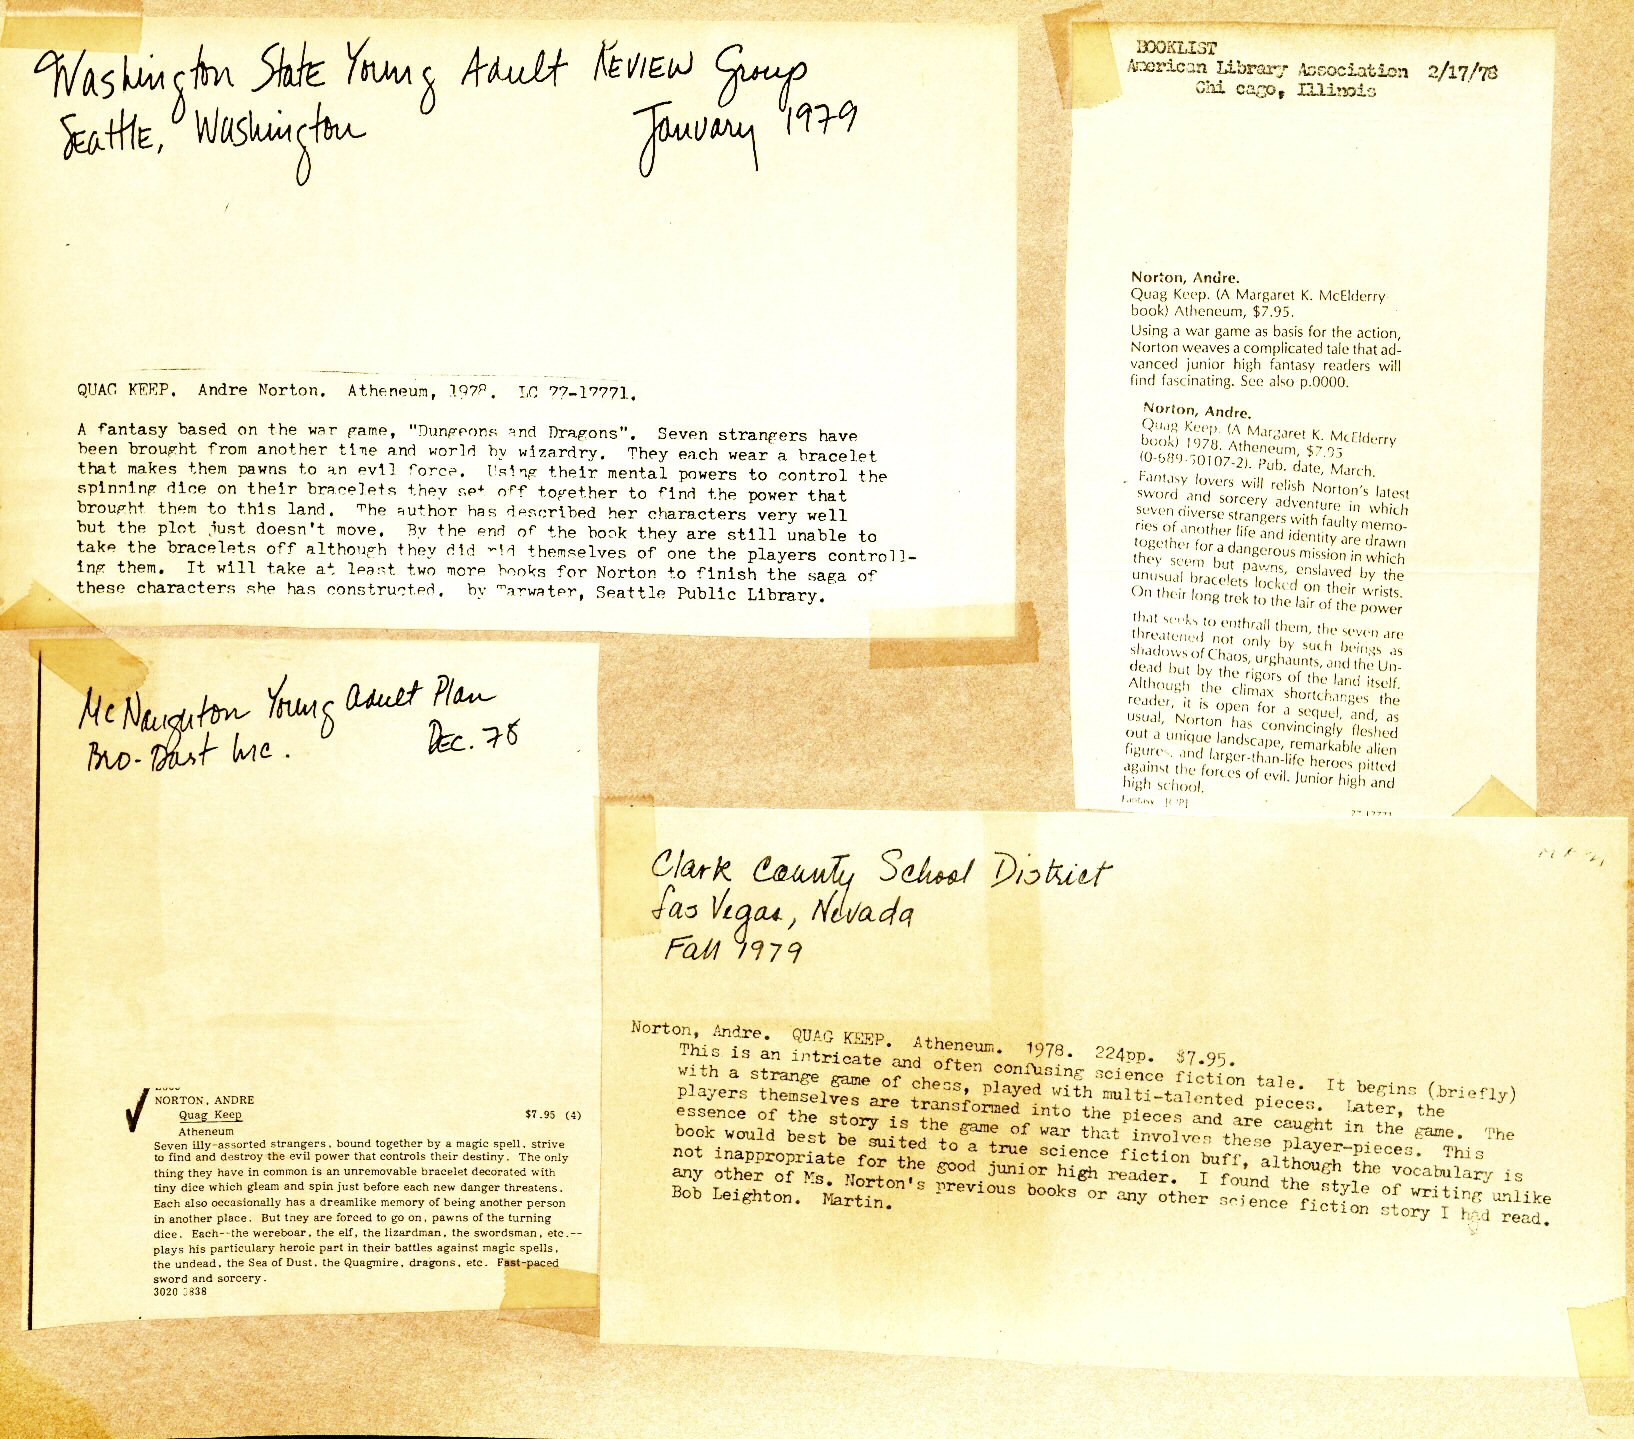 Washington State Young Adult Review Group
Seattle, Washington January 1979
QUAG KEEP. Andre Norton. Atheneum, 1978. LC 77-17771.
A fantasy based on the war game, "Dungeons and Dragons". Seven strangers have
been brought from another time and world by wizardry. They each wear a bracelet
that makes them pawns to an evil force. Using their mental powers to control the
spinning dice on their bracelets they set off together to find the power that
brought them to this land. The author has described her characters very well
but the plot just doesn't move. By the end of the book they are still unable to
take the bracelets off although they did rid themselves of one the players controll-
ing them. It will take at least two more books for Norton to finish the saga of
these characters she has constructed. by Tarwater, Seattle Public Library.
BOOKLIST
American Library Association 2/17/78
Chi cago, Illinois
Norton, Andre.
Quag Keep. (A Margaret K. McElderry
book) Atheneum, $7.95.
Using a war game as basis for the action,
Norton weaves a complicated tale that ad-
vanced junior high fantasy readers will
find fascinating. See also p.0000.
Norton, Andre.
Quag Keep. (A Margaret K. McElderry
book) 1978. Atheneum, $7.95
(0-689-50107-2). Pub. date, March.
Fantasy lovers will relish Norton's latest
sword and sorcery adventure in which
seven diverse strangers with faulty memo-
ries of another life and identity are drawn
together for a dangerous mission in which
they seem but pawns, enslaved by the
unusual bracelets locked on their wrists.
On their long trek to the lair of the power
that seeks to enthrall them, the seven are
threatened not only by such beings as
shadows of Chaos, urghaunts, and the Un-
dead but by the rigors of the land itself.
Although the climax shortchanges the
reader, it is open for a sequel, and, as
usual, Norton has convincingly fleshed
out a unique landscape, remarkable alien
figures, and larger-than-life heroes pitted
against the forces of evil. Junior high and
high school.
Fantasy [CIP] 77-17771
McNaughton Young Adult Plan
Bro-Dart Inc. Dec. 78
NORTON, ANDRE
Quag Keep $7.95 (4)
Atheneum
Seven illy-assorted strangers, bound together by a magic spell, strive
to find and destroy the evil power that controls their destiny. The only
thing they have in common is an unremovable bracelet decorated with
tiny dice which gleam and spin just before each new danger threatens.
Each also occasionally has a dreamlike memory of being another person
in another place. But they are forced to go on, pawns of the turning
dice. Each--the wereboar, the elf, the lizardman, the swordsman, etc.--
plays his particulary heroic part in their battles against magic spells,
the undead, the Sea of Dust, the Quagmire, dragons, etc. Fast-paced
sword and sorcery.
3020 3838
Clark County School District
Las Vegas, Nevada
Fall 1979
Norton, Andre. QUAG KEEP. Atheneum. 1978. 224pp. $7.95.
This is an intricate and often confusing science fiction tale. It begins (briefly)
with a strange game of chess, played with multi-talented pieces. Later, the
players themselves are transformed into the pieces and are caught in the game. The
essence of the story is the game of war that involves these player-pieces. This
book would best be suited to a true science fiction buff, although the vocabulary is
not inappropriate for the good junior high reader. I found the style of writing unlike
any other of Ms. Norton's previous books or any other science fiction story I had read.
Bob Leighton. Martin.